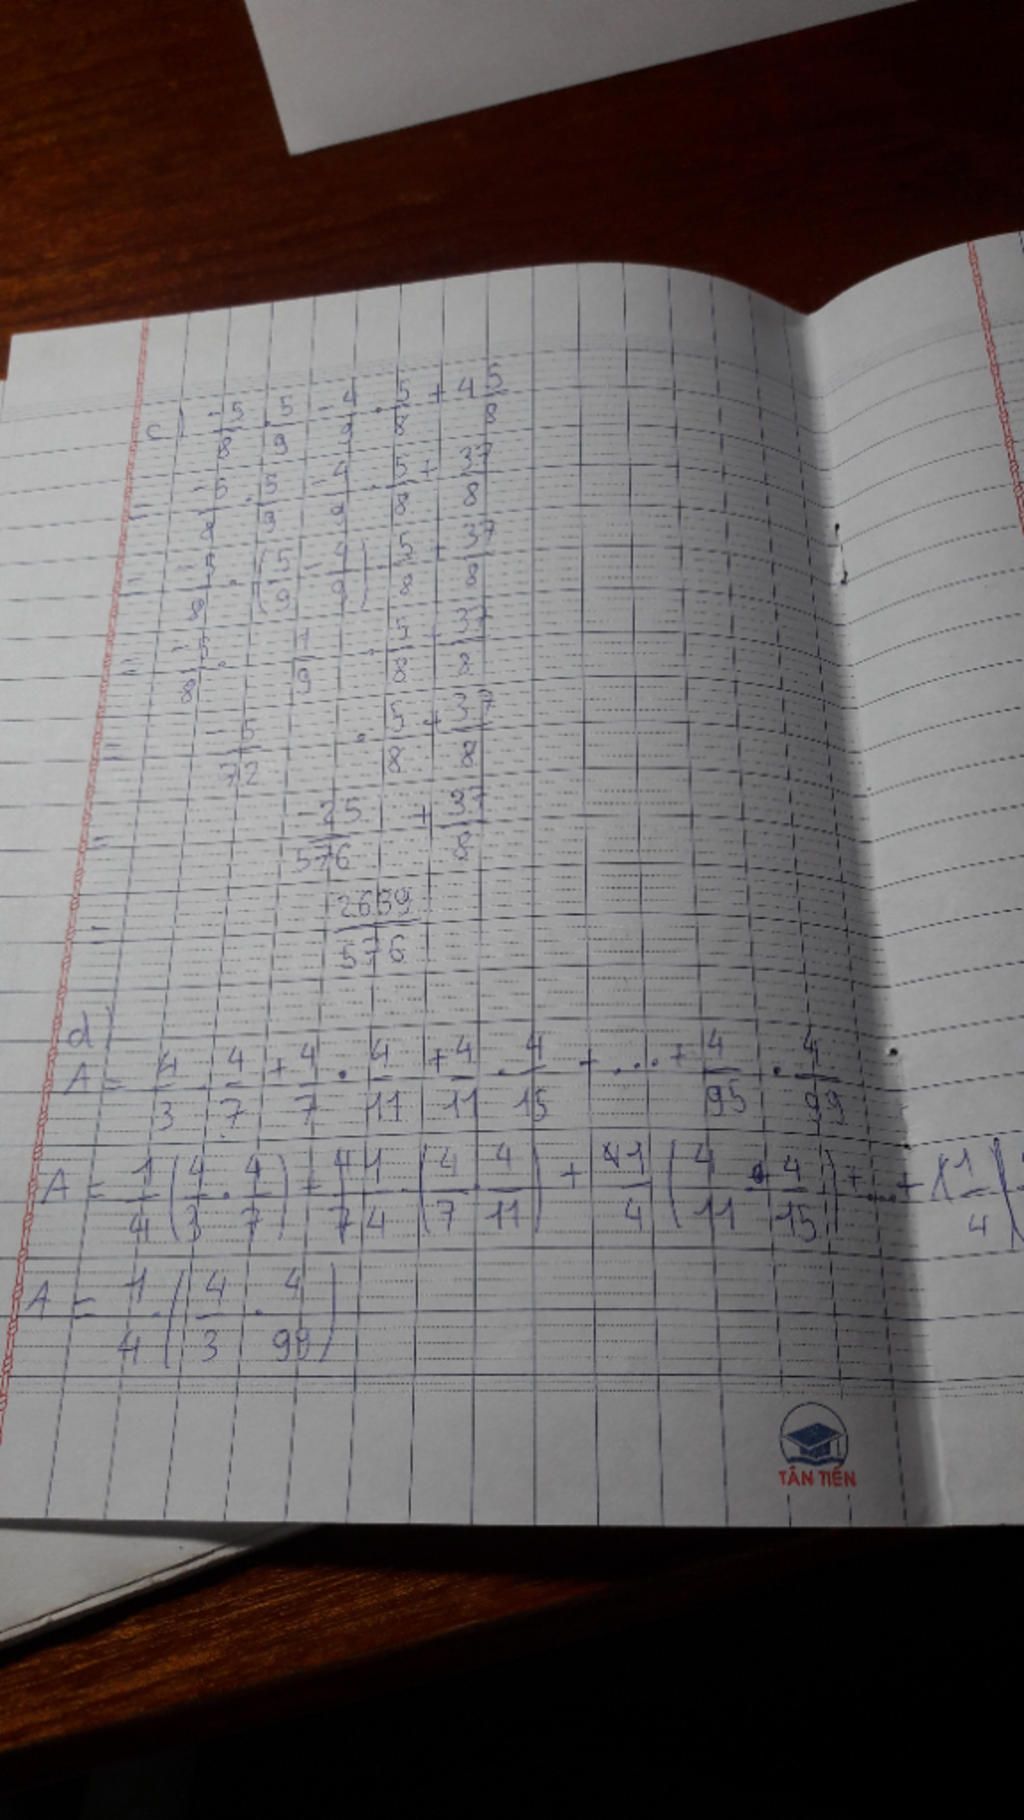 c) -5/8 . 5/9 - 4/9 . 5/8 + 4 5/8
= -5/8 . 5/9 - 4/9 . 5/8 + 37/8
= -5/8 . (5/9 - 4/9) . 5/8 + 37/8
= -5/8 . 1/9 . 5/8 + 37/8
= -5/72 . 5/8 + 37/8
= -25/576 + 37/8
= 2639/576
d)
A = 4/3 . 4/7 + 4/7 . 4/11 + 4/11 . 4/15 + ... + 4/95 . 4/99
A = 1/4 (4/3 . 4/7) + 1/4 . (4/7 . 4/11) + 1/4 (4/11 . 4/15) + ... + 1/4 (
A = 1/4 . (4/3 . 4/99)
TÂN TIẾN